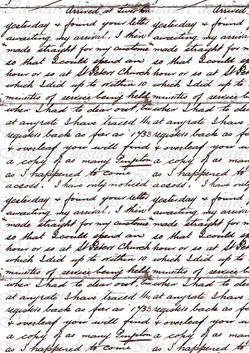 Arrived at Arrived
yesterday & found your letter yesterday & found your
awaiting my arrival. I then awaiting my arrival. I
made straight for my made straight for
so that I could spend an so that I could
hour or so at St Peters Church hour or so at St
which I did up to within 10 which I did up to
minutes of service being held minutes of service
when I had to clear out, when I had to
at any rate I have traced the at any rate I have
registers back as far as 1733 registers back as
& overleaf you will find & overleaf you
a copy of as many Empton a copy of as many
as I happened to come as I happened to
across. I have only noticed across. I have
yesterday & found your letter yesterday & found your
awaiting my arrival. I then awaiting my arrival. I
made straight for my made straight for
so that I could spend an so that I could
hour or so at St Peters Church hour or so at St
which I did up to within 10 which I did up to
minutes of service being held minutes of service
when I had to clear out, when I had to
at any rate I have traced the at any rate I have
registers back as far as 1733 registers back as
& overleaf you will find & overleaf you
a copy of as many Empton a copy of as many
as I happened to come as I happened to